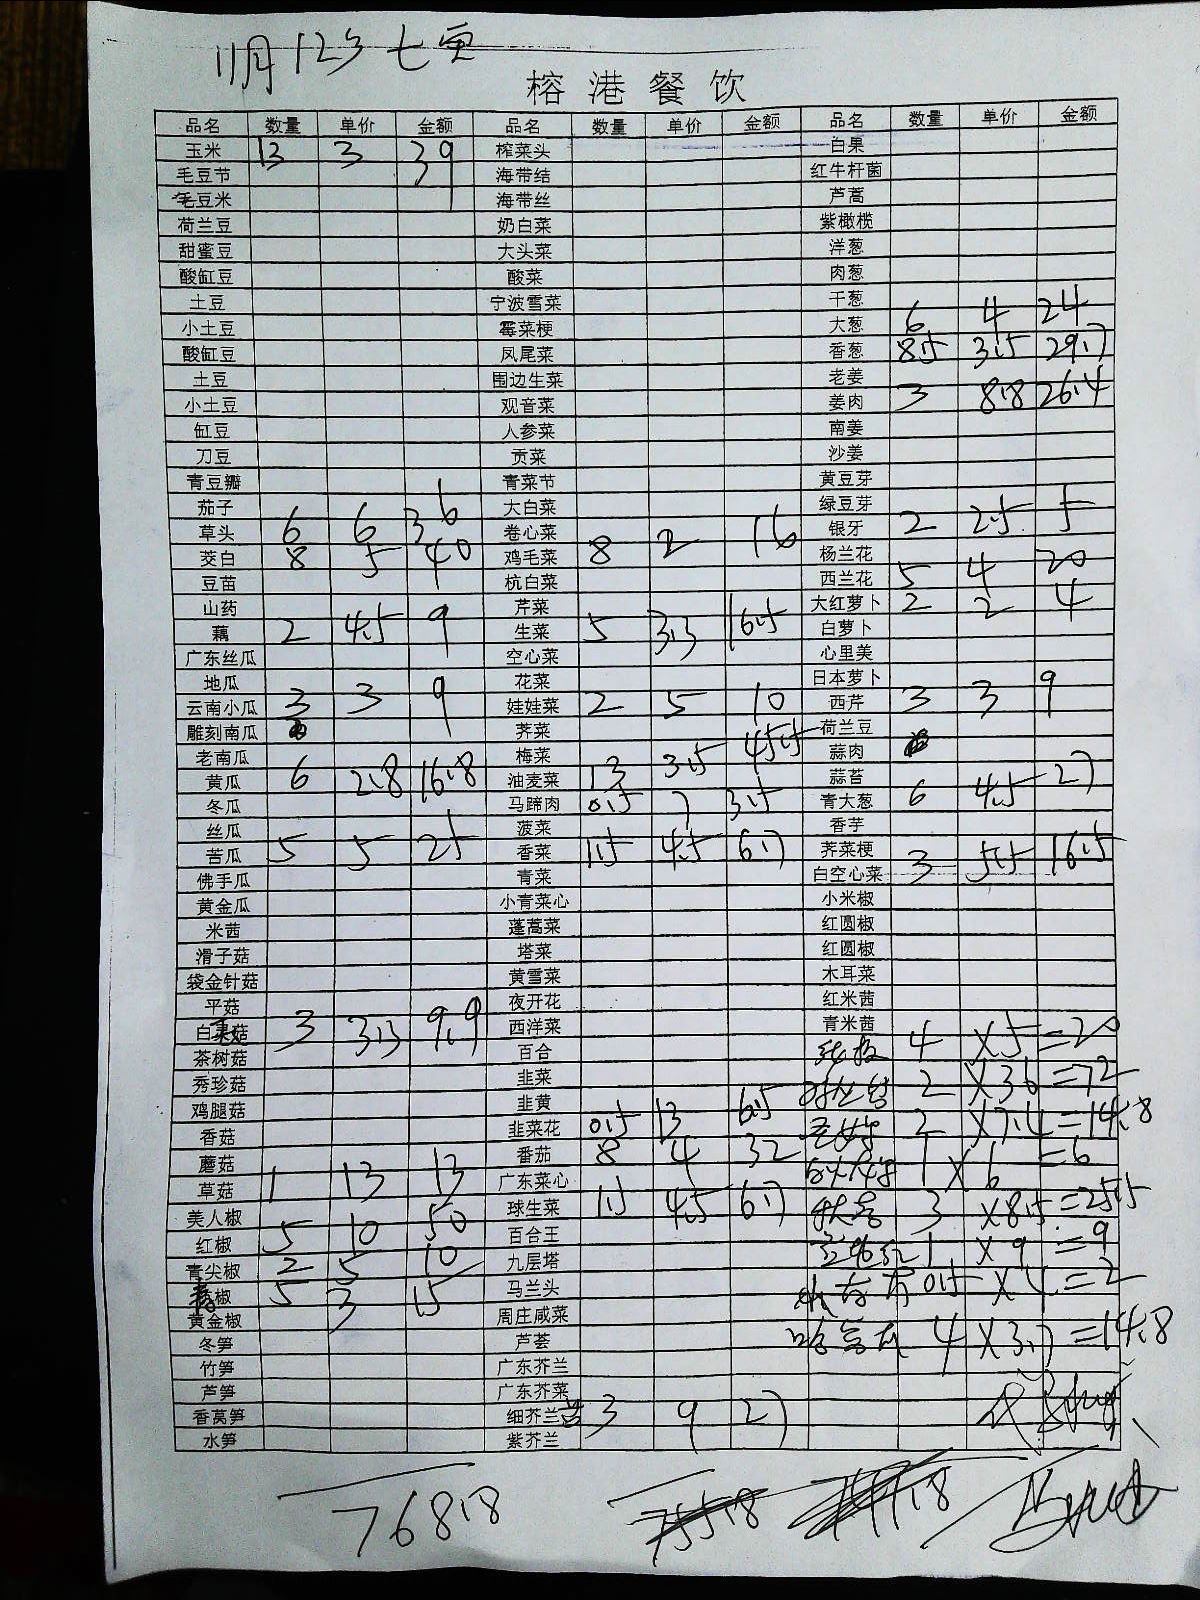 11月12号 七页
榕港餐饮
品名 数量 单价 金额 品名 数量 单价 金额 品名 数量 单价 金额
玉米 13 3 39 榨菜头 白果
毛豆节 海带结 红牛杆菌
毛豆米 海带丝 芦蒿
荷兰豆 奶白菜 紫橄榄
甜蜜豆 大头菜 洋葱
酸缸豆 酸菜 肉葱
土豆 宁波雪菜 干葱
小土豆 霉菜梗 大葱 6 4 24
酸缸豆 凤尾菜 香葱 8.5 3.5 29.7
土豆 围边生菜 老姜
小土豆 观音菜 姜肉 3 8.8 26.4
缸豆 人参菜 南姜
刀豆 贡菜 沙姜
青豆瓣 青菜节 黄豆芽
茄子 大白菜 绿豆芽
草头 6 6 36 卷心菜 银牙 2 2.5 5
茭白 8 5 40 鸡毛菜 8 2 16 杨兰花
豆苗 杭白菜 西兰花 5 4 20
山药 芹菜 大红萝卜 2 2 4
藕 2 4.5 9 生菜 5 3.3 16.5 白萝卜
广东丝瓜 空心菜 心里美
地瓜 花菜 日本萝卜
云南小瓜 3 3 9 娃娃菜 2 5 10 西芹 3 3 9
雕刻南瓜 荠菜 荷兰豆
老南瓜 梅菜 蒜肉
黄瓜 6 2.8 16.8 油麦菜 13 3.5 45.5 蒜苔
冬瓜 马蹄肉 0.5 7 3.5 青大葱 6 4.5 27
丝瓜 菠菜 香芋
苦瓜 5 5 25 香菜 1.5 4.5 6.7 荠菜梗
佛手瓜 青菜 白空心菜 3 5.5 16.5
黄金瓜 小青菜心 小米椒
米茜 蓬蒿菜 红圆椒
滑子菇 塔菜 红圆椒
袋金针菇 黄雪菜 木耳菜
平菇 夜开花 红米茜
白菇 3 3.3 9.9 西洋菜 青米茜
茶树菇 百合 4 ×5=20
秀珍菇 韭菜 2 ×36=72
鸡腿菇 韭黄 2 ×7.4=14.8
香菇 韭菜花 0.5 13 6.5
蘑菇 番茄 8 4 32 1 ×6=6
草菇 1 13 13 广东菜心
美人椒 球生菜 1.5 4.5 6.7 3 ×8.5=25.5
红椒 5 10 50 百合王 1 ×9=9
青尖椒 2 5 10 九层塔
青椒 5 3 15 马兰头 0.5 ×4=2
黄金椒 周庄咸菜
冬笋 芦荟 4 ×3.7=14.8
竹笋 广东芥兰
芦笋 广东芥菜
香莴笋 细芥兰 3 9 27
水笋 紫芥兰
768.8
755.8